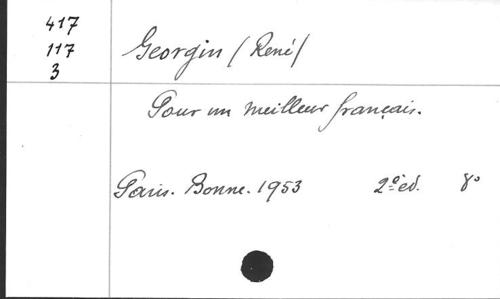 417
117
3
Georgin (René)
Pour un meilleur français.
Paris. Bonne. 1953 2e éd. 8°